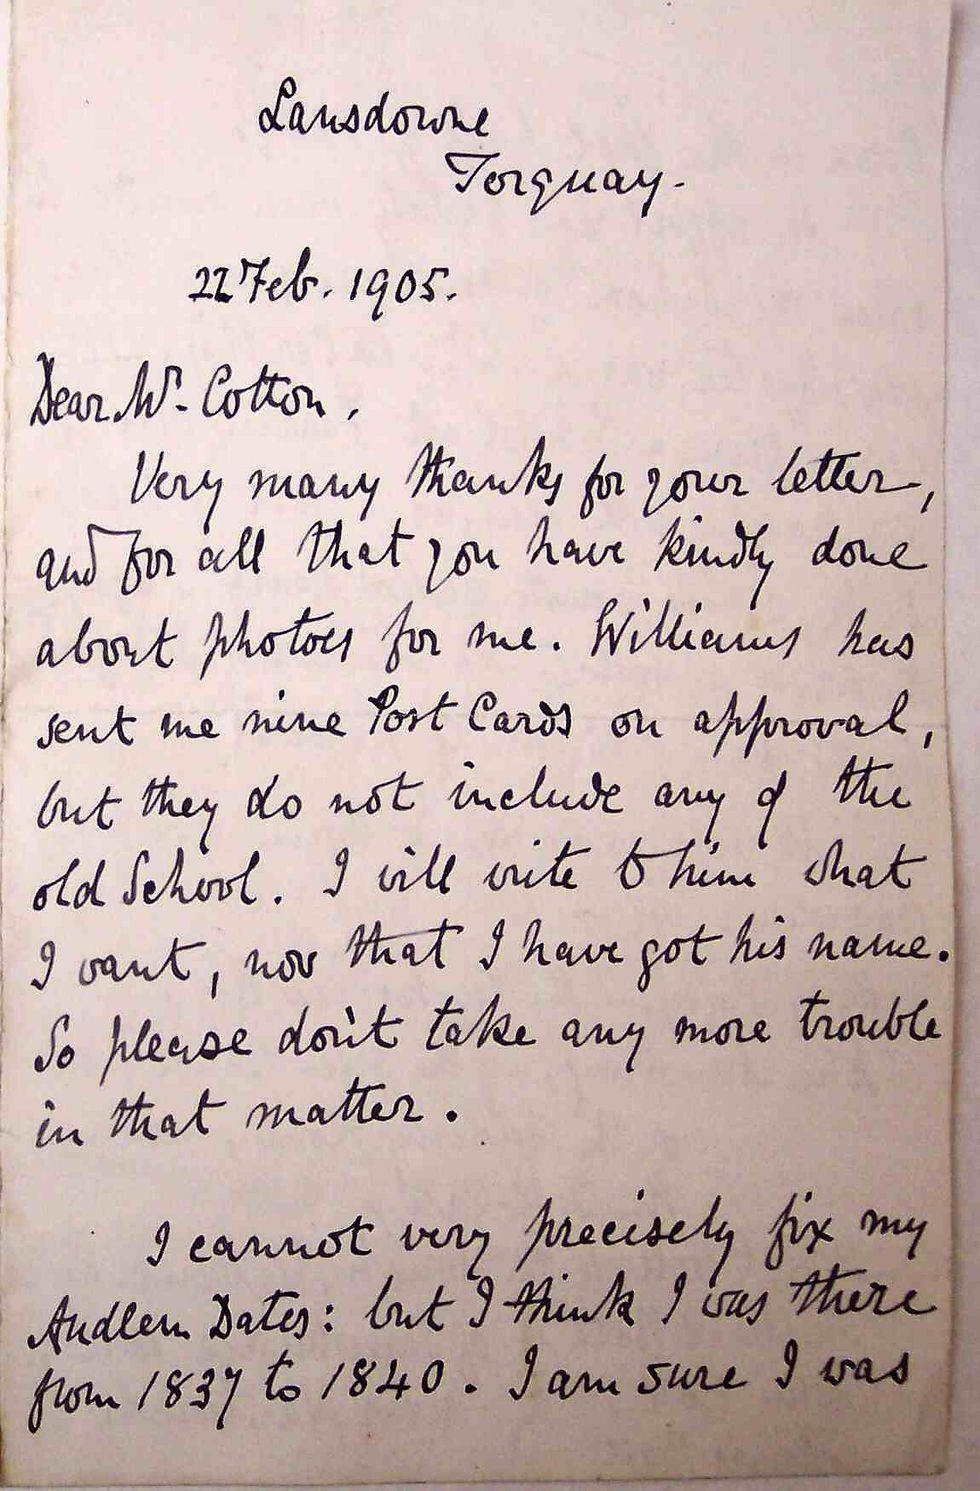 Lansdowne
Torquay.
22 Feb. 1905.
Dear Mr. Cotton,
Very many thanks for your letter,
and for all that you have kindly done
about photoes for me. Williams has
sent me nine Post Cards on approval,
but they do not include any of the
old School. I will write to him what
I want, now that I have got his name.
So please don't take any more trouble
in that matter.
I cannot very precisely fix my
Audlem Dates: but I think I was there
from 1837 to 1840. I am sure I was